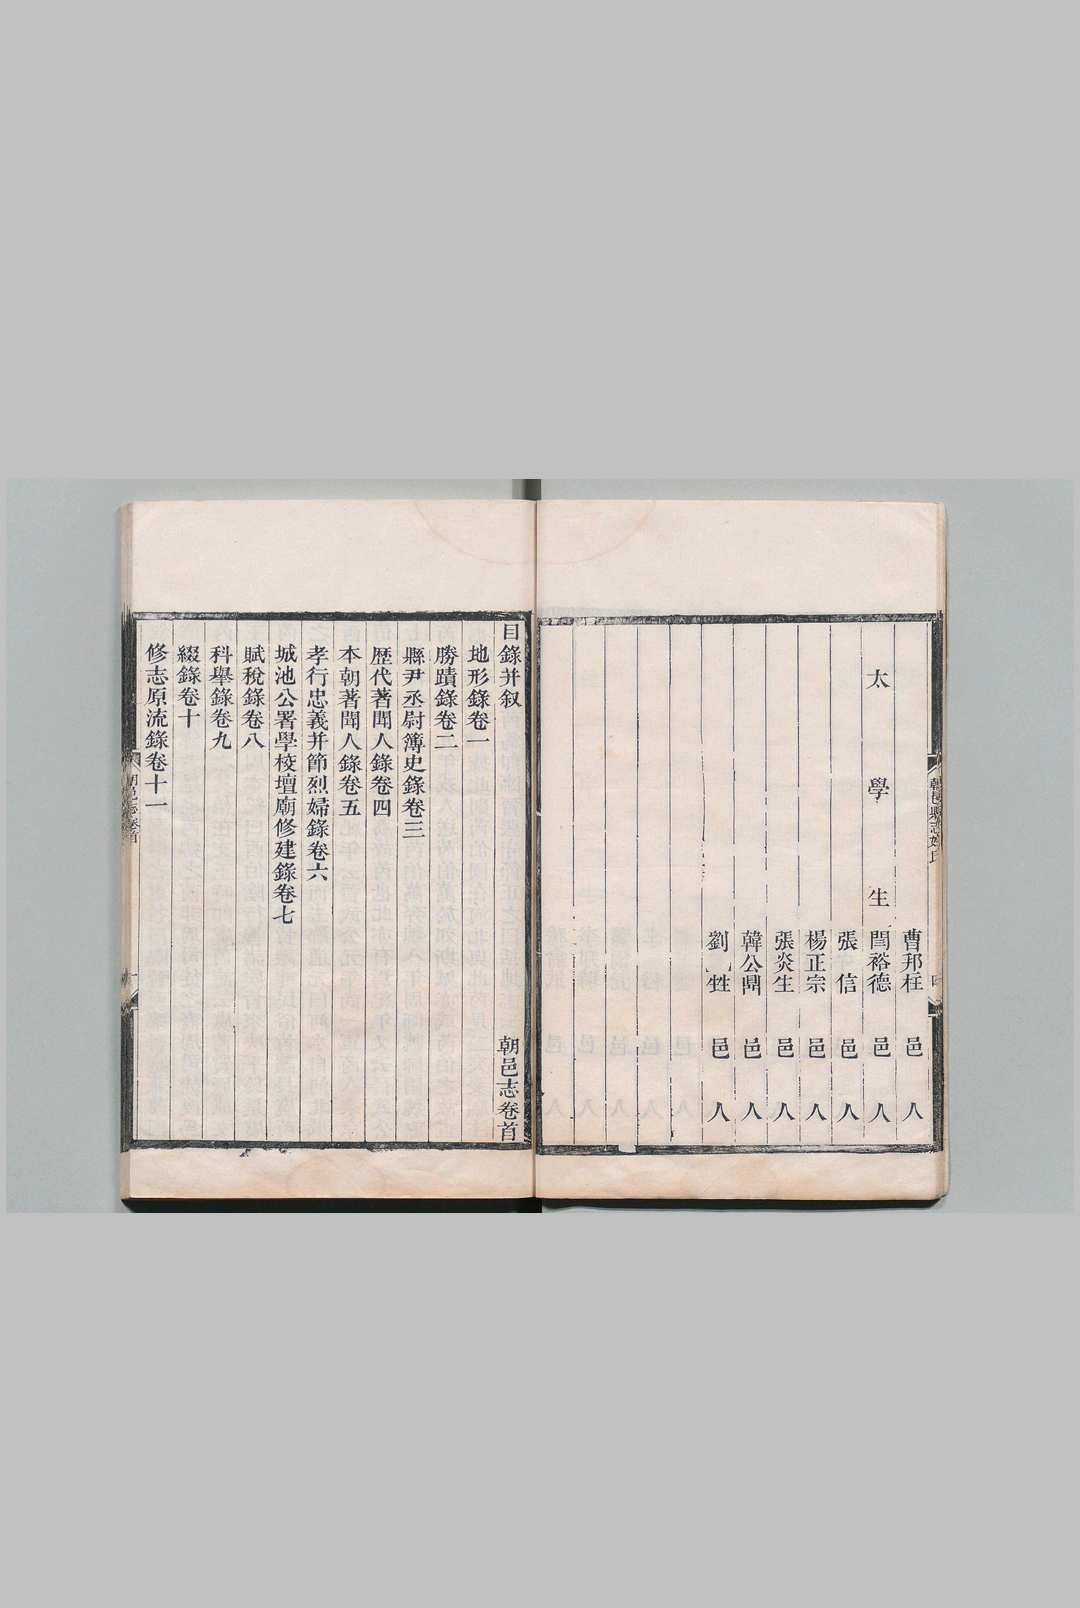 曹邦柱 邑人
太學生 閆裕德 邑人
張信 邑人
楊正宗 邑人
張炎生 邑人
韓公鼎 邑人
劉甡 邑人
目錄并叙 朝邑志卷首
地形錄卷一
勝蹟錄卷二
縣尹丞尉簿史錄卷三
歷代著聞人錄卷四
本朝著聞人錄卷五
孝行忠義并節烈婦錄卷六
城池公署學校壇廟修建錄卷七
賦稅錄卷八
科舉錄卷九
綴錄卷十
修志原流錄卷十一